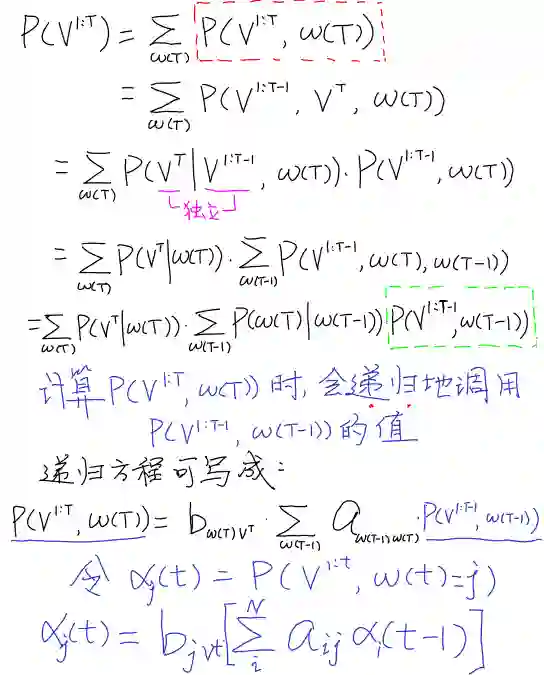 P(V^{1:T}) = \sum_{ω(T)} P(V^{1:T}, ω(T))
= \sum_{ω(T)} P(V^{1:T-1}, V^T, ω(T))
= \sum_{ω(T)} P(V^T | V^{1:T-1}, ω(T)) · P(V^{1:T-1}, ω(T))
独立
= \sum_{ω(T)} P(V^T | ω(T)) · \sum_{ω(T-1)} P(V^{1:T-1}, ω(T), ω(T-1))
= \sum_{ω(T)} P(V^T | ω(T)) · \sum_{ω(T-1)} P(ω(T) | ω(T-1)) P(V^{1:T-1}, ω(T-1))
计算 P(V^{1:T}, ω(T)) 时, 会递归地调用
P(V^{1:T-1}, ω(T-1)) 的值
递归方程可写成:
P(V^{1:T}, ω(T)) = b_{ω(T)V^T} · \sum_{ω(T-1)} a_{ω(T-1)ω(T)} · P(V^{1:T-1}, ω(T-1))
令 α_j(t) = P(V^{1:t}, ω(t)=j)
α_j(t) = b_{jv^t} [\sum_i^N a_{ij} α_i(t-1)]